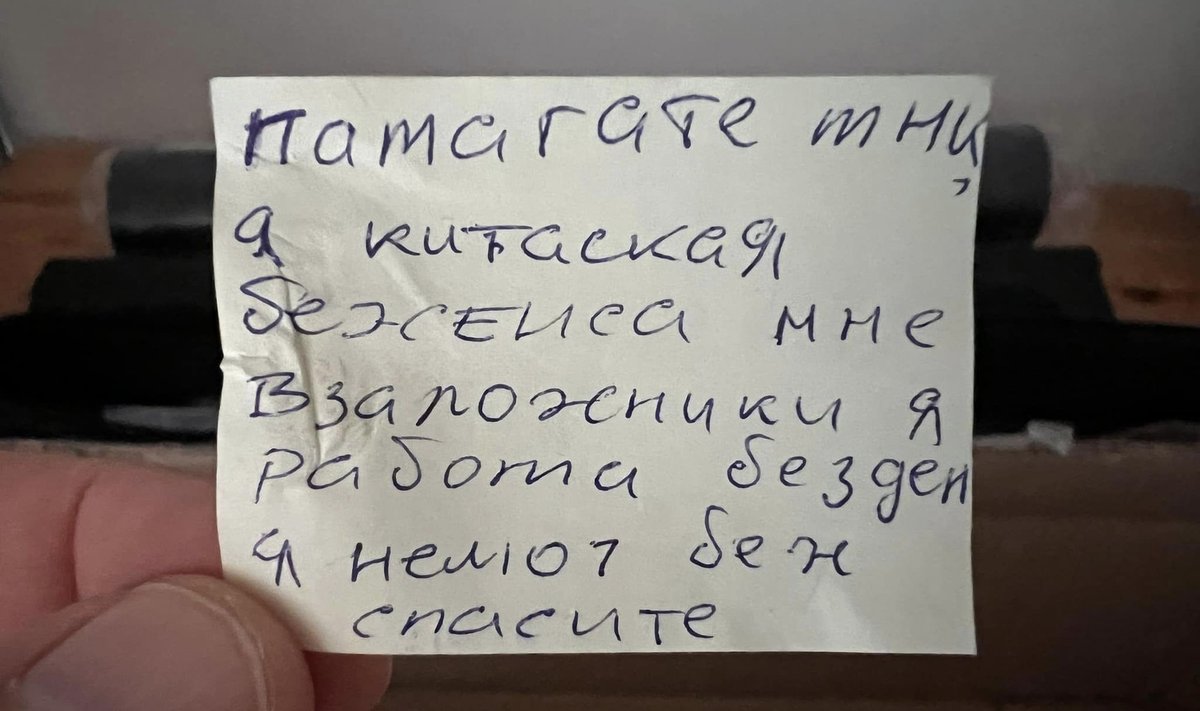 Патагате мни,
я китаская
беженса мне
взаложники я
работа безден
я немот беж
спасите